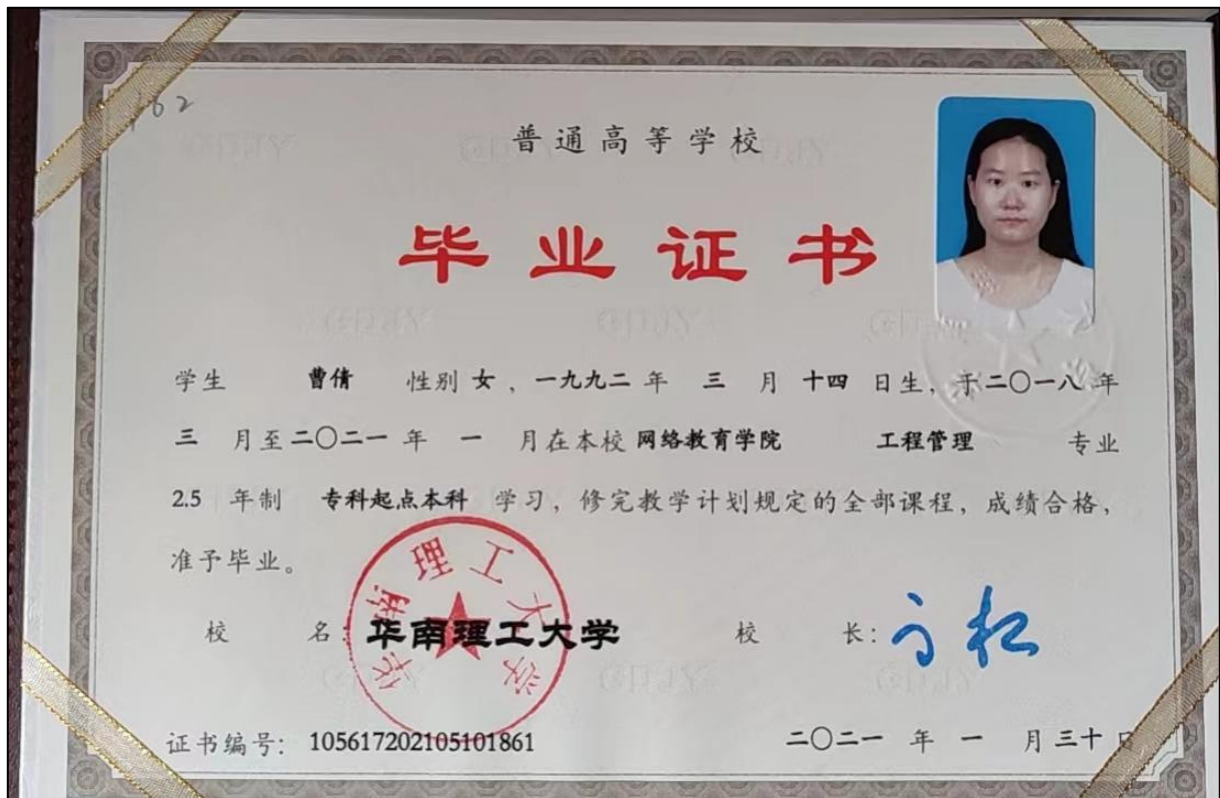 162
普通高等学校
毕业证书
学生 曹倩 性别 女，一九九二 年 三 月 十四 日生，于二〇一八 年
三 月至 二〇二一 年 一 月在本校 网络教育学院 工程管理 专业
2.5 年制 专科起点本科 学习，修完教学计划规定的全部课程，成绩合格，
准予毕业。
华南理工大学
校 名：华南理工大学 校 长：
证书编号：105617202105101861 二〇二一 年 一 月 三十 日